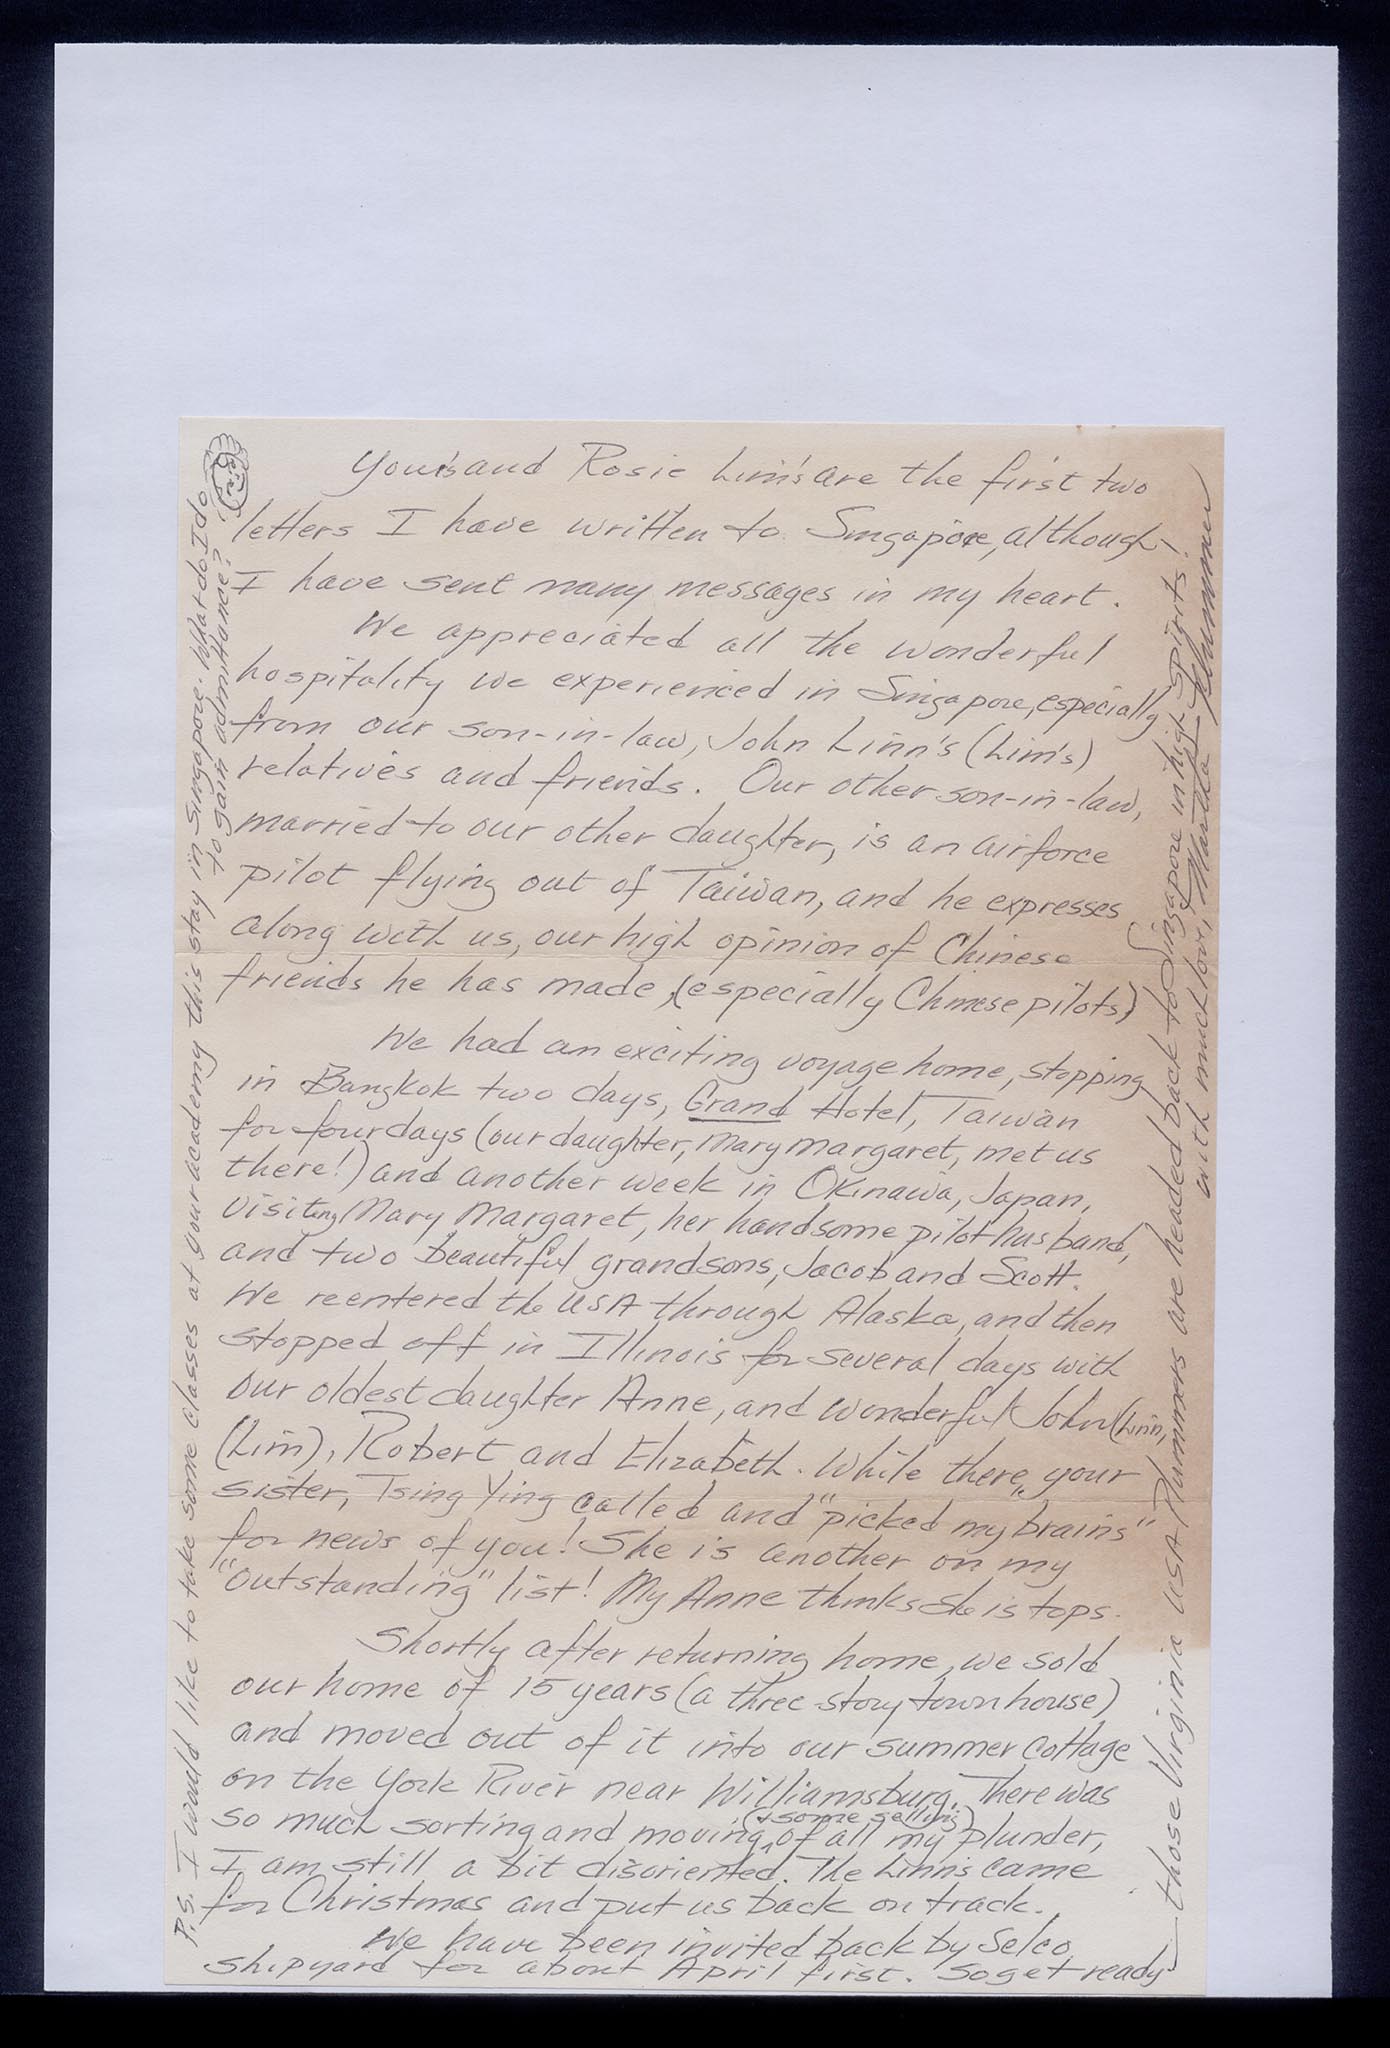 Your's and Rosie Lim's are the first two
letters I have written to Singapore, although
I have sent many messages in my heart.
We appreciated all the wonderful
hospitality we experienced in Singapore, especially
from our son-in-law, John Linn's (Lim's)
relatives and friends. Our other son-in-law,
married to our other daughter, is an airforce
pilot flying out of Taiwan, and he expresses
along with us, our high opinion of Chinese
friends he has made, (especially Chinese pilots)
We had an exciting voyage home, stopping
in Bangkok two days, Grand Hotel, Taiwan
for four days (our daughter, Mary Margaret, met us
there!) and another week in Okinawa, Japan,
visiting Mary Margaret, her handsome pilot husband,
and two beautiful grandsons, Jacob and Scott.
We reentered the USA through Alaska, and then
stopped off in Illinois for several days with
our oldest daughter Anne, and wonderful John (Linn,
(Lim), Robert and Elizabeth. While there, your
sister, Tsing Ying called and "picked my brains"
for news of you! She is another on my
"outstanding" list! My Anne thinks she is tops.
Shortly after returning home, we sold
our home of 15 years (a three story townhouse)
and moved out of it into our summer cottage
on the York River near Williamsburg. There was
so much sorting and moving, (& some selling) of all my plunder,
I am still a bit disoriented. The Linn's came
for Christmas and put us back on track.
We have been invited back by Selco
Shipyard for about April first. So get ready
those Virginia USA Plummers are headed back to Singapore in high spirits!
with much love, Martha Plummer
P.S. I would like to take some classes at your academy this stay in Singapore. What do I do
to gain admittance?